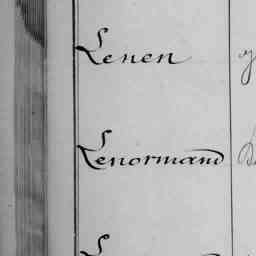 Lenen
Lenormand